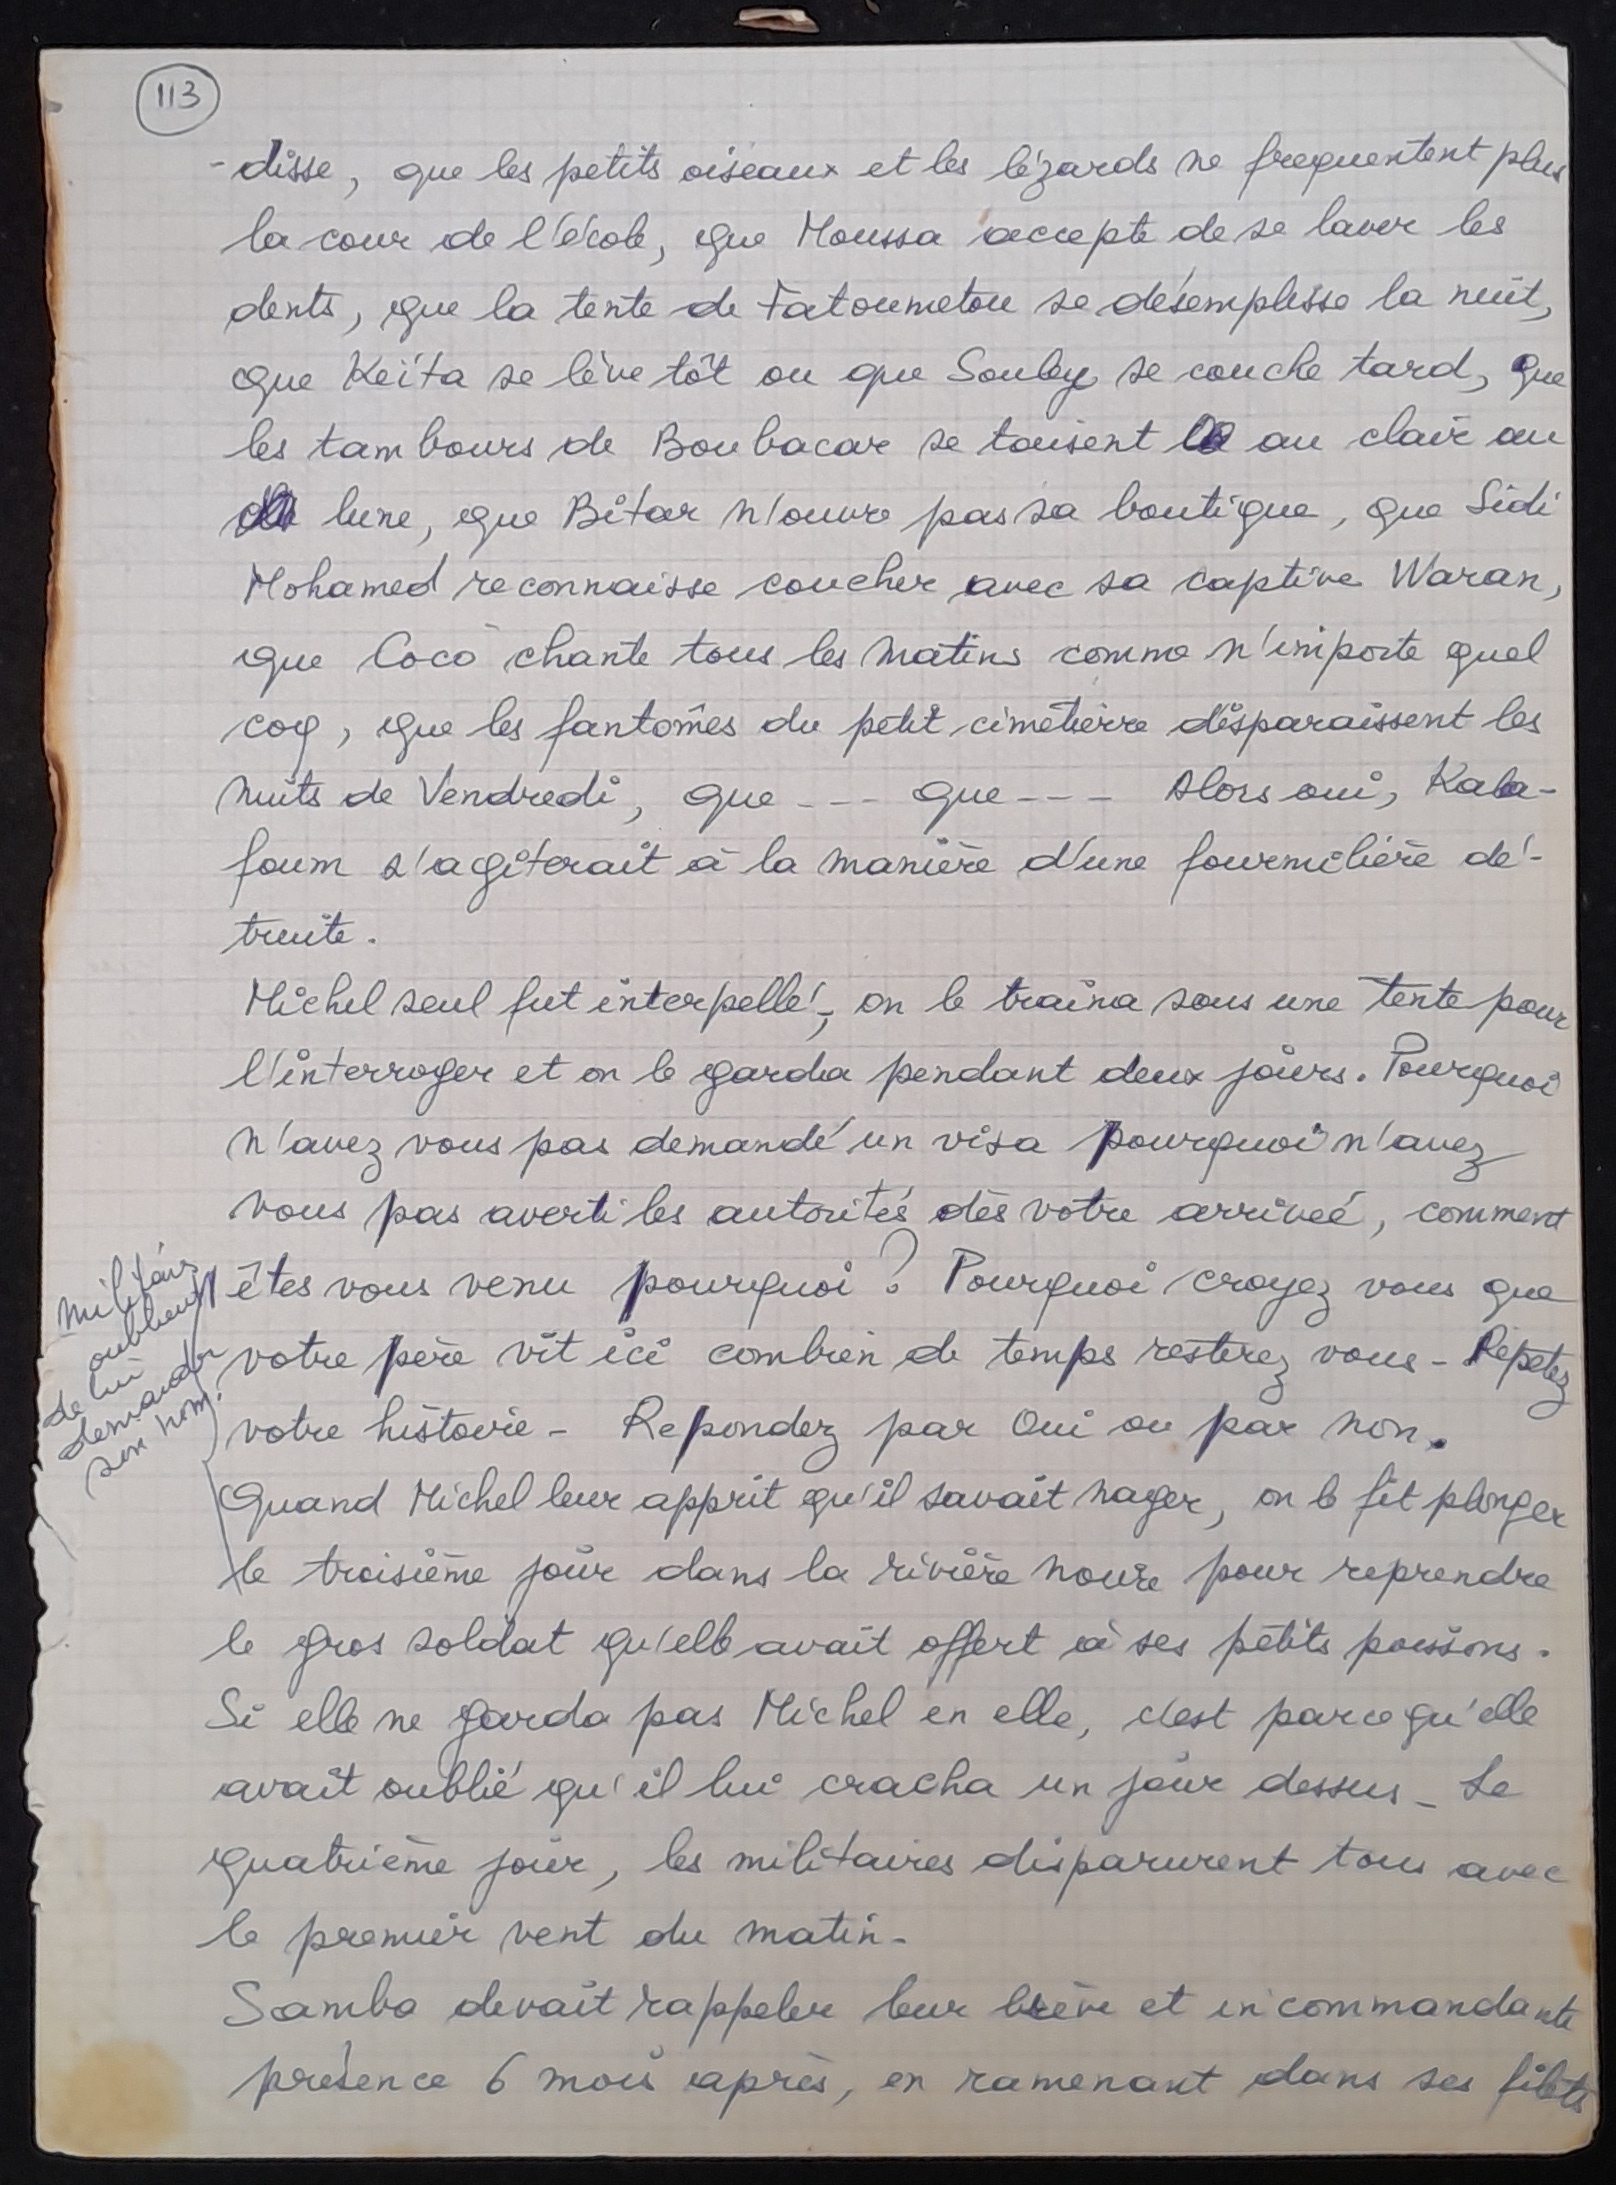 113
-disse, que les petits oiseaux et les lézards ne frequentent plus
la cour de l'école, que Moussa accepte de se laver les
dents, que la tente de Fatoumetou se désemplisse la nuit,
que Keïta se lève tôt ou que Souley se couche tard, que
les tambours de Boubacar se taisent au clair au
lune, que Bitar n'ouvre pas sa boutique, que Sidi
Mohamed reconnaisse coucher avec sa captive Waran,
que Coco chante tous les matins comme n'importe quel
coq, que les fantômes du petit cimetièrre disparaissent les
nuits de Vendredi, que --- que --- Alors oui, Kala-
foum s'agiterait à la manière d'une fourmilière dé-
truite.
Michel seul fut interpellé, on le traina sous une tente pour
l'interroger et on le garda pendant deux jours. Pourquoi
n'avez vous pas demandé un visa pourquoi n'avez
vous pas averti les autorités dès votre arriveé, comment
êtes vous venu pourquoi ? Pourquoi croyez vous que
votre père vit ici combien de temps resterez vous - Répetez
votre histoire - Repondez par Oui ou par non.
militaires
oublient
de lui
demander
son nom.
Quand Michel leur apprit qu'il savait nager, on le fit plonger
le troisième jour dans la rivière noire pour reprendre
le gros soldat qu'elle avait offert à ses petits poissons.
Si elle ne garda pas Michel en elle, c'est parce qu'elle
avait oublié qu'il lui cracha un jour dessus - Le
quatrième jour, les militaires disparurent tous avec
le premier vent du matin -
Samba devait rappeler leur brève et incommandante
présence 6 mois après, en ramenant dans ses filets